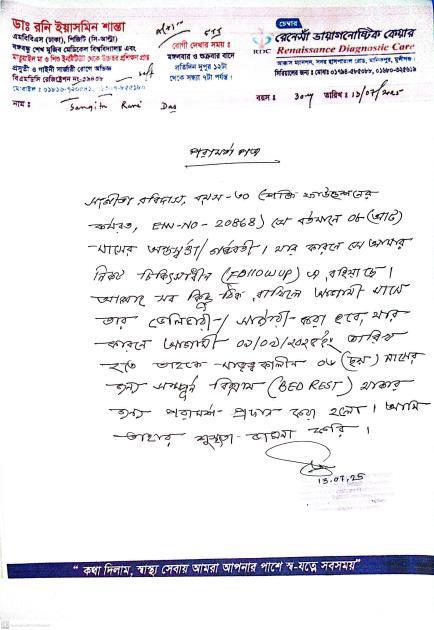 ডাঃ রনি ইয়াসমিন শান্তা
এমবিবিএস (ঢাকা), পিজিটি (সি-আল্ট্রা)
বঙ্গবন্ধু শেখ মুজিব মেডিকেল বিশ্ববিদ্যালয় এবং
মাতুয়াইল মা ও শিশু ইনস্টিটিউট থেকে উচ্চতর প্রশিক্ষণ প্রাপ্ত
প্রসূতী ও গাইনী সার্জারী রোগে অভিজ্ঞ
বিএমডিসি রেজিস্ট্রেশন নং-
মোবাইল :
রোগী দেখার সময় :
মঙ্গলবার ও শুক্রবার বাদে
প্রতিদিন দুপুর ১২টা
থেকে সন্ধ্যা ৭টা পর্যন্ত।
চেম্বার
রেনেসাঁ ডায়াগনোস্টিক কেয়ার
RDC Renaissance Diagnostic Care
সিরিয়ালের জন্য : মোবাঃ ০১৭৯৪-৫৮৫০৮৮, ০১৬৮০-৩২৫৬১৯
নাম : Sangita Rani Das বয়স : 30y তারিখ : ১৩/০৭/২০২৫
পরামর্শ পত্র
রবিদাস, বয়স-৩০
কর্মরত, EIN-NO-20868) সে বর্তমানে ০৮ (আট)
মাসের অন্তঃসত্ত্বা/গর্ভবতী। যার কারনে সে আমার
নিকট চিকিৎসাধীন (FOLLOW UP) এ রহিয়াছে।
সব কিছু ঠিক থাকিলে আগামী মাসে
তার ডেলিভারী/সার্জারী করা হবে, যার
কারনে আগামী তারিখ
হতে তাহাকে মাতৃত্বকালীন ০৬ (ছয়) মাসের
জন্য সম্পূর্ন বিশ্রাম (BED REST) থাকার
জন্য পরামর্শ প্রদান করা হলো। আমি
তাহার সুস্থতা কামনা করি।
13.07.25
“ কথা দিলাম, স্বাস্থ্য সেবায় আমরা আপনার পাশে স্ব-যত্নে সবসময়”